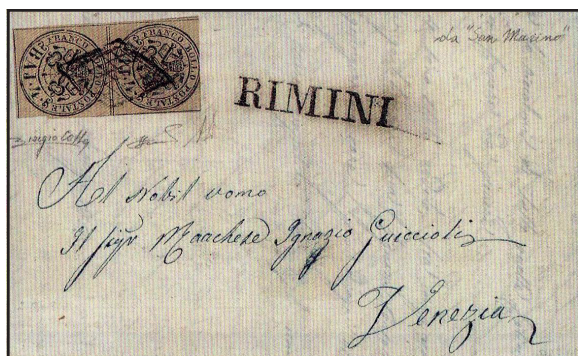 da "San Marino"
FRANCO BOLLO POSTALE BAJ. 4
FRANCO BOLLO POSTALE BAJ. 4
RIMINI
Al Nobil uomo
Il Sigr Marchese Ignazio Guiccioli
Venezia